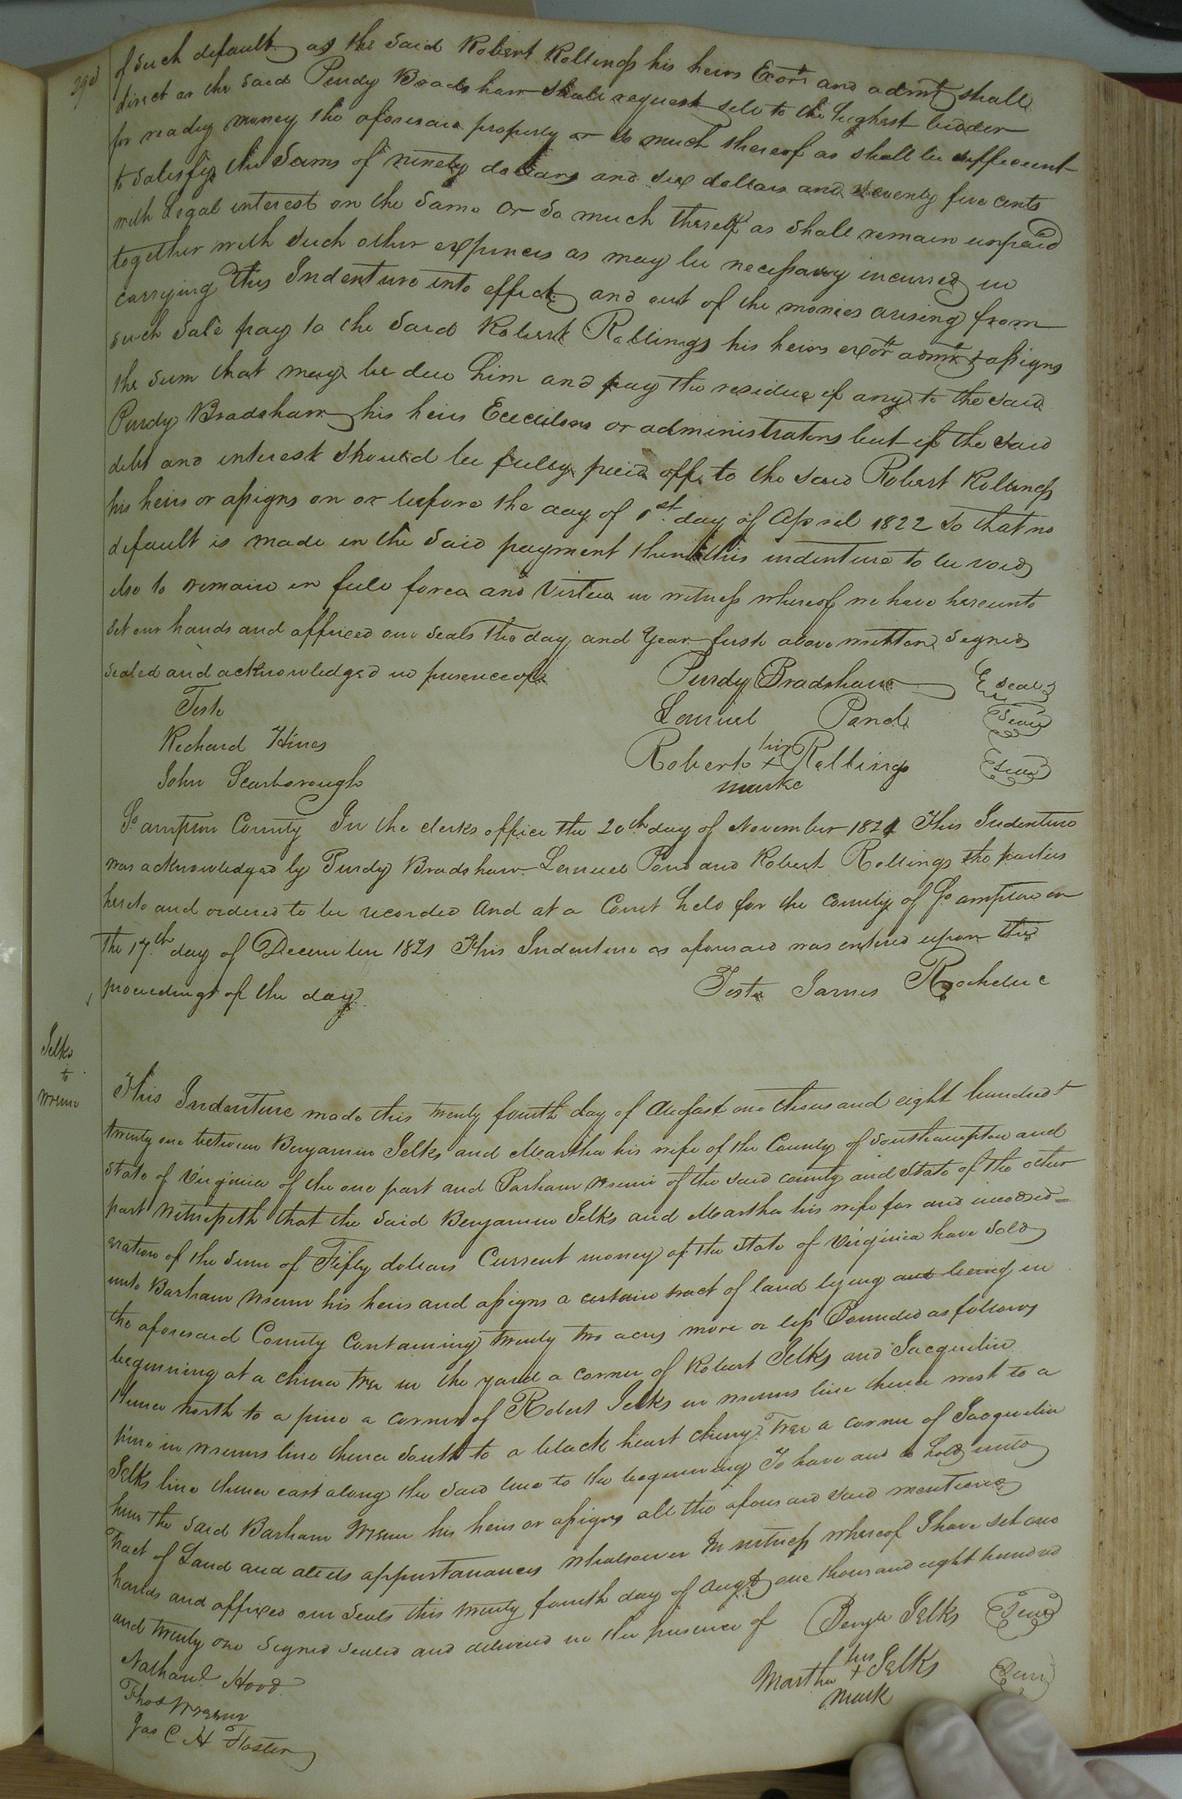 of such default as the said Robert Rollings his heirs Exors and admrs shall
direct as the said Purdy Bradshaw shall request sell to the highest bidder
for ready money the aforesaid property or so much thereof as shall be sufficient
to satisfy the Sums of ninety dollars and six dollars and seventy five cents
with Legal interest on the Same or so much thereof as shall remain unpaid
together with such other expences as may be necessary incurred in
carrying this Indenture into effect and out of the monies arising from
such sale pay to the said Robert Rollings his heirs exors admrs & assigns
the sum that may be due him and pay the residue if any to the said
Purdy Bradshaw his heirs Executors or administrators but if the said
debt and interest should be fully paid off to the said Robert Rollings
his heirs or assigns on or before the day of 1st day of April 1822 so that no
default is made in the said payment then this indenture to be void
else to remain in full force and Virtue in witness whereof we have hereunto
set our hands and affixed our seals the day and Year first above written signed
sealed and acknowledged in presence of
Purdy Bradshaw Seal
Teste
Lemuel Pond Seal
Richard Hines
Robert his + Rollings Seal
mark
John Scarborough
So ampton County In the clerks office the 20th day of November 1821 This Indenture
was acknowledged by Purdy Bradshaw Lemuel Pond and Robert Rollings the parties
hereto and ordered to be recorded And at a Court held for the County of So ampton on
the 17th day of December 1821 This Indenture as aforesaid was entered upon the
proceedings of the day
Teste James Rochelle
Jelks
to
Wrenn
This Indenture made this twenty fourth day of August one thousand eight hundred &
twenty one between Benjamin Jelks and Martha his wife of the County of Southampton and
State of Virginia of the one part and Parham Wrenn of the said county and State of the other
part Witnesseth that the said Benjamin Jelks and Martha his wife for and in consid=
eration of the sum of Fifty dollars Current money of the State of Virginia have sold
unto Barham Wrenn his heirs and assigns a certain tract of land lying and being in
the aforesaid County Containing twenty two acres more or less Bounded as follows
beginning at a china tree in the yard a corner of Robert Jelks and Jacquelin
thence north to a pine a corner of Robert Jelks in Wrenns line thence west to a
pine in Wrenns line thence South to a black heart cherry Tree a corner of Jacquelin
Jelks line thence east along the said line to the beginning To have and to hold unto
him the said Barham Wrenn his heirs or assigns all the aforesaid said mentioned
tract of Land and all its appurtanances whatsoever In witness whereof I have set our
hands and affixed our seals this twenty fourth day of Augt one thousand eight hundred
and twenty one Signed sealed and delivered in the presence of
Benja Jelks Seal
Nathanl Hood
Martha his + Jelks Seal
mark
Thos Wrenn
Jas C H Foster